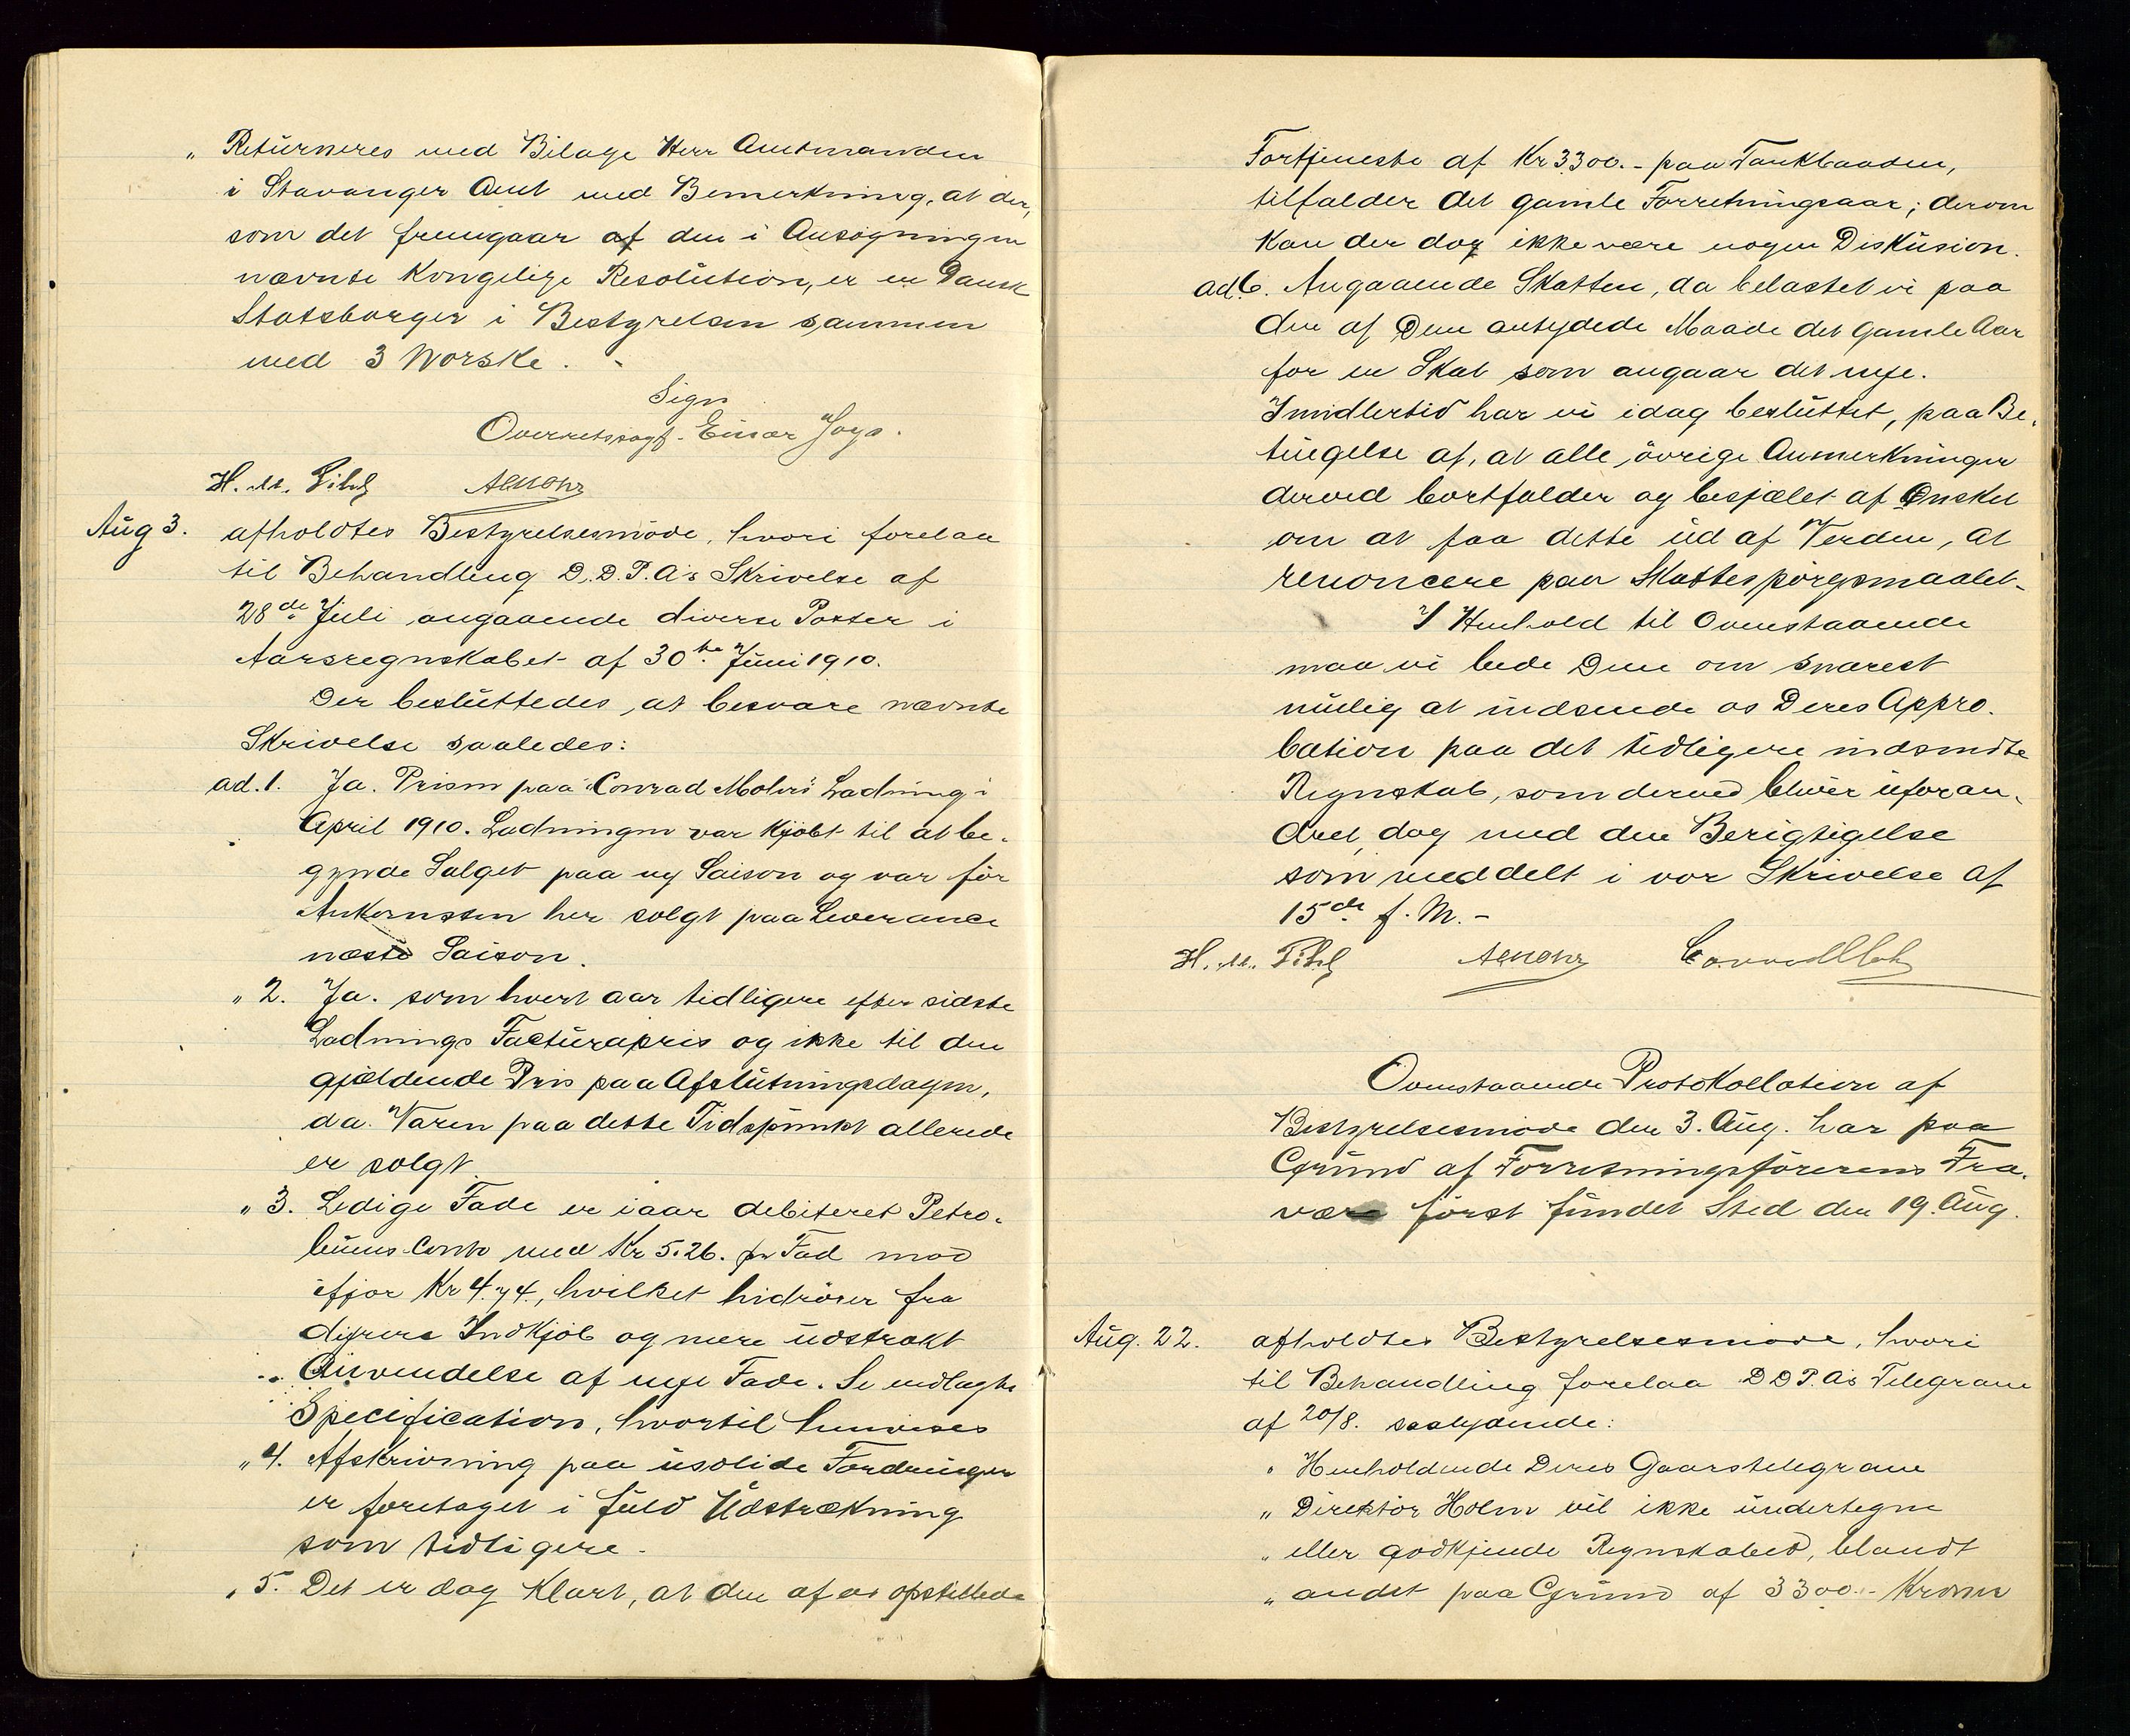 „ Returneres med Bilage Herr Amtmanden
i Stavanger Amt med Bemerkning, at der,
som det fremgaar af den i Ansøgningen
nævnte Kongelige Resolution, er en Dansk
Statsborger i Bestyrelsen sammen
med 3 Norske. -
Sign
Overretssagf. Einar
H. M. Pihl
Aug 3. afholdtes Bestyrelsesmöde, hvori forelaa
til Behandling D.D.P.A's Skrivelse af
28de Juli angaaende diverse Poster i
Aarsregnskabet af 30te Juni 1910.
Der besluttedes, at besvare nævnte
Skrivelse saaledes:
ad. 1. Ja. Prisen paa "Conrad Mohrs" Ladning i
April 1910. Ladningen var kjöbt til at be-
gynde Salget paa ny Saison og var för
Ankomsten her solgt paa Leverance
næste Saison.
„ 2. Ja. som hvert aar tidligere efter sidste
Ladnings Facturapris og ikke til den
gjældende Pris paa Afslutningsdagen,
da Varen paa dette Tidspunkt allerede
er solgt.
„ 3. Ledige Fade er iaar debiteret Petro-
leums Conto med Kr 5.26. pr Fad mod
ifjor Kr 4.74., hvilket hidrörer fra
dyrere Indkjöb og mere udstrakt
Anvendelse af nye Fade. Se indlagte
Specification, hvortil henvises
„ 4. Afskrivning paa usolide Fordringer
er foretaget i fuld Udstrækning
som tidligere.
„ 5. Det er dog klart, at den af os opstillede
Fortjeneste af Kr 3300.- paa Tankbaaden,
tilfalder det gamle Forretningsaar; derom
kan der dog ikke være nogen Diskusion.
ad. 6. Angaaende Skatten, da belastet vi paa
den af Dem antydede Maade det gamle Aar
for en Skat som angaar det nye.
Imidlertid har vi idag besluttet, paa Be-
tingelse af, at alle övrige Anmerkninger
derved bortfalder og besjælet af Ønsket
om at faa dette ud af Verden, at
renoncere paa Skattespörgsmaalet.
I Henhold til Ovenstaaende
maa vi bede Dem om snarest
mulig at indsende os Deres Appro-
bation paa det tidligere indsendte
Regnskab, som derved bliver uforan-
dret, dog med den Berigtigelse
som meddelt i vor Skrivelse af
15de f. M. -
H. M. Pihl
Ovenstaaende Protokollation af
Bestyrelsesmöde den 3. Aug. har paa
Grund af Forretningsförerens Fra-
vær först fundet Sted den 19. Aug.
Aug. 22. afholdtes Bestyrelsesmöde, hvori
til Behandling forelaa D D P. A's Telegram
af 20/8. saalydende:
„ Henholdende Deres Gaarstelegram
„ Direktör Holm vil ikke undertegne
„ eller godkjende Regnskabet, blandt
„ andet paa Grund af 3300.- Kroner